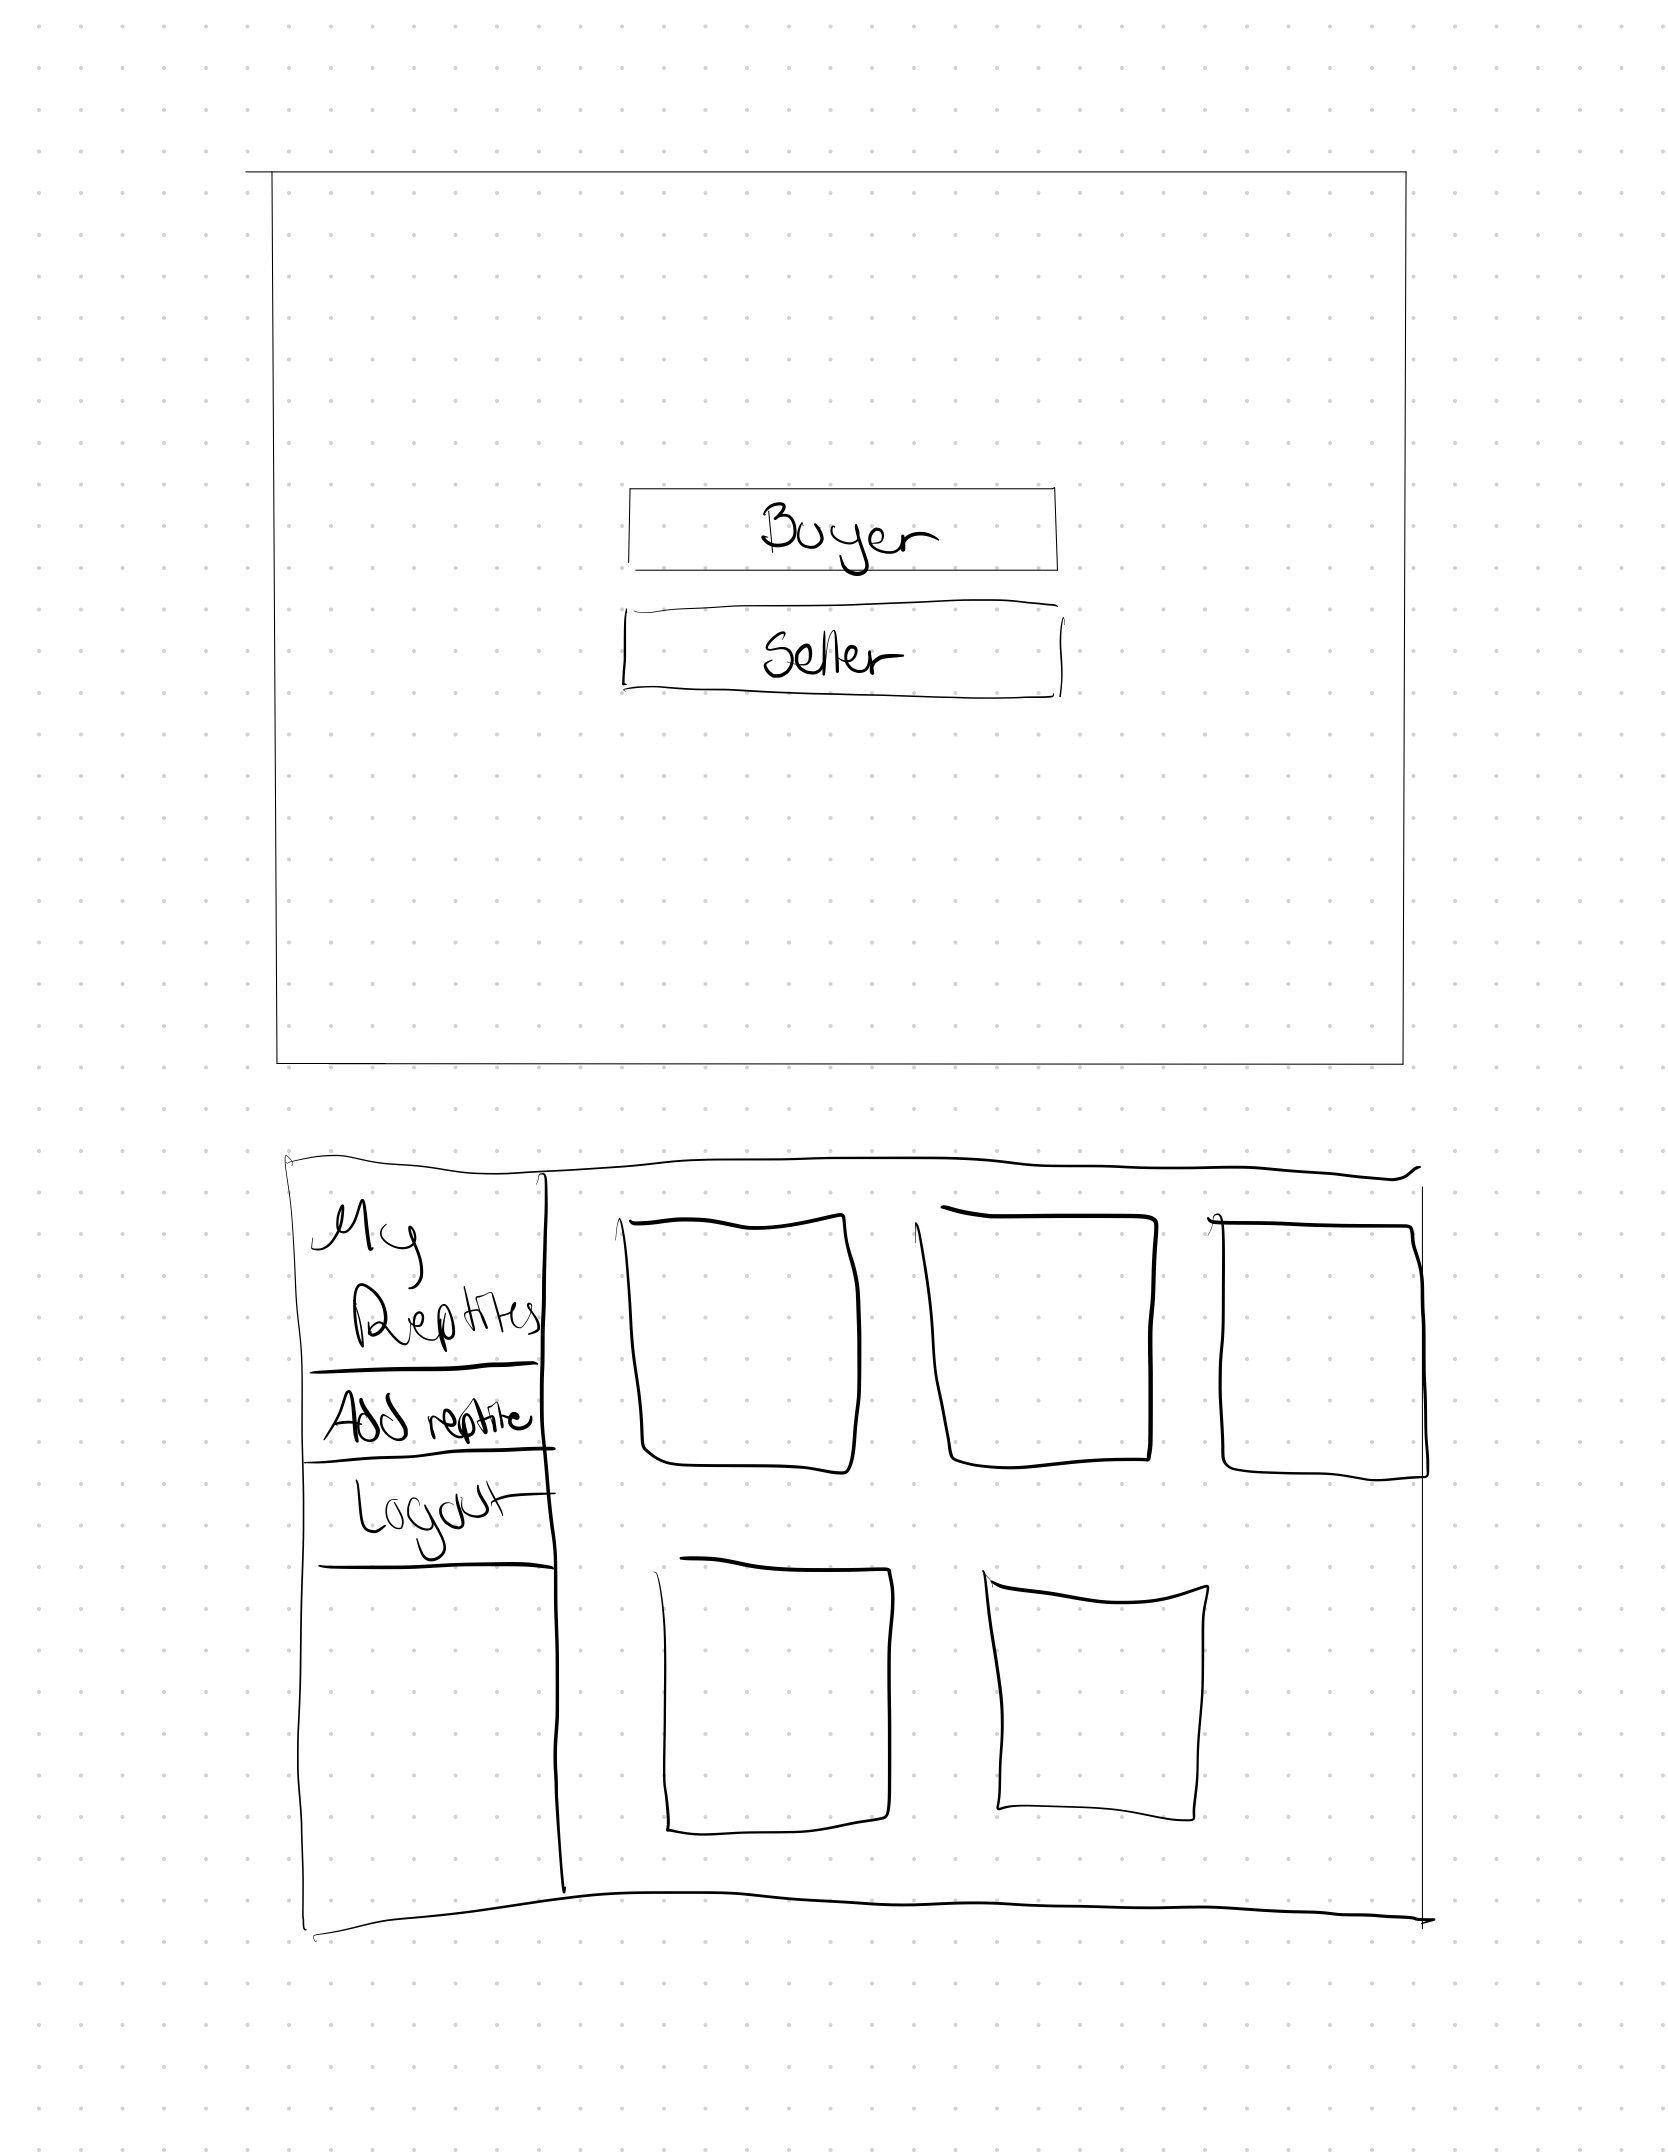 Buyer
Seller
My
Reptiles
Add reptile
Logout